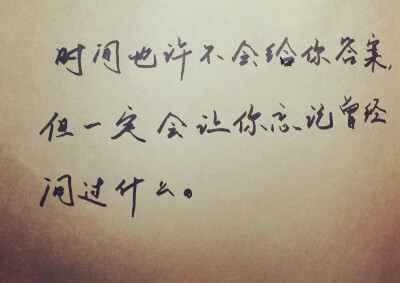 时间也许不会给你答案,
但一定会让你忘记曾经
问过什么。